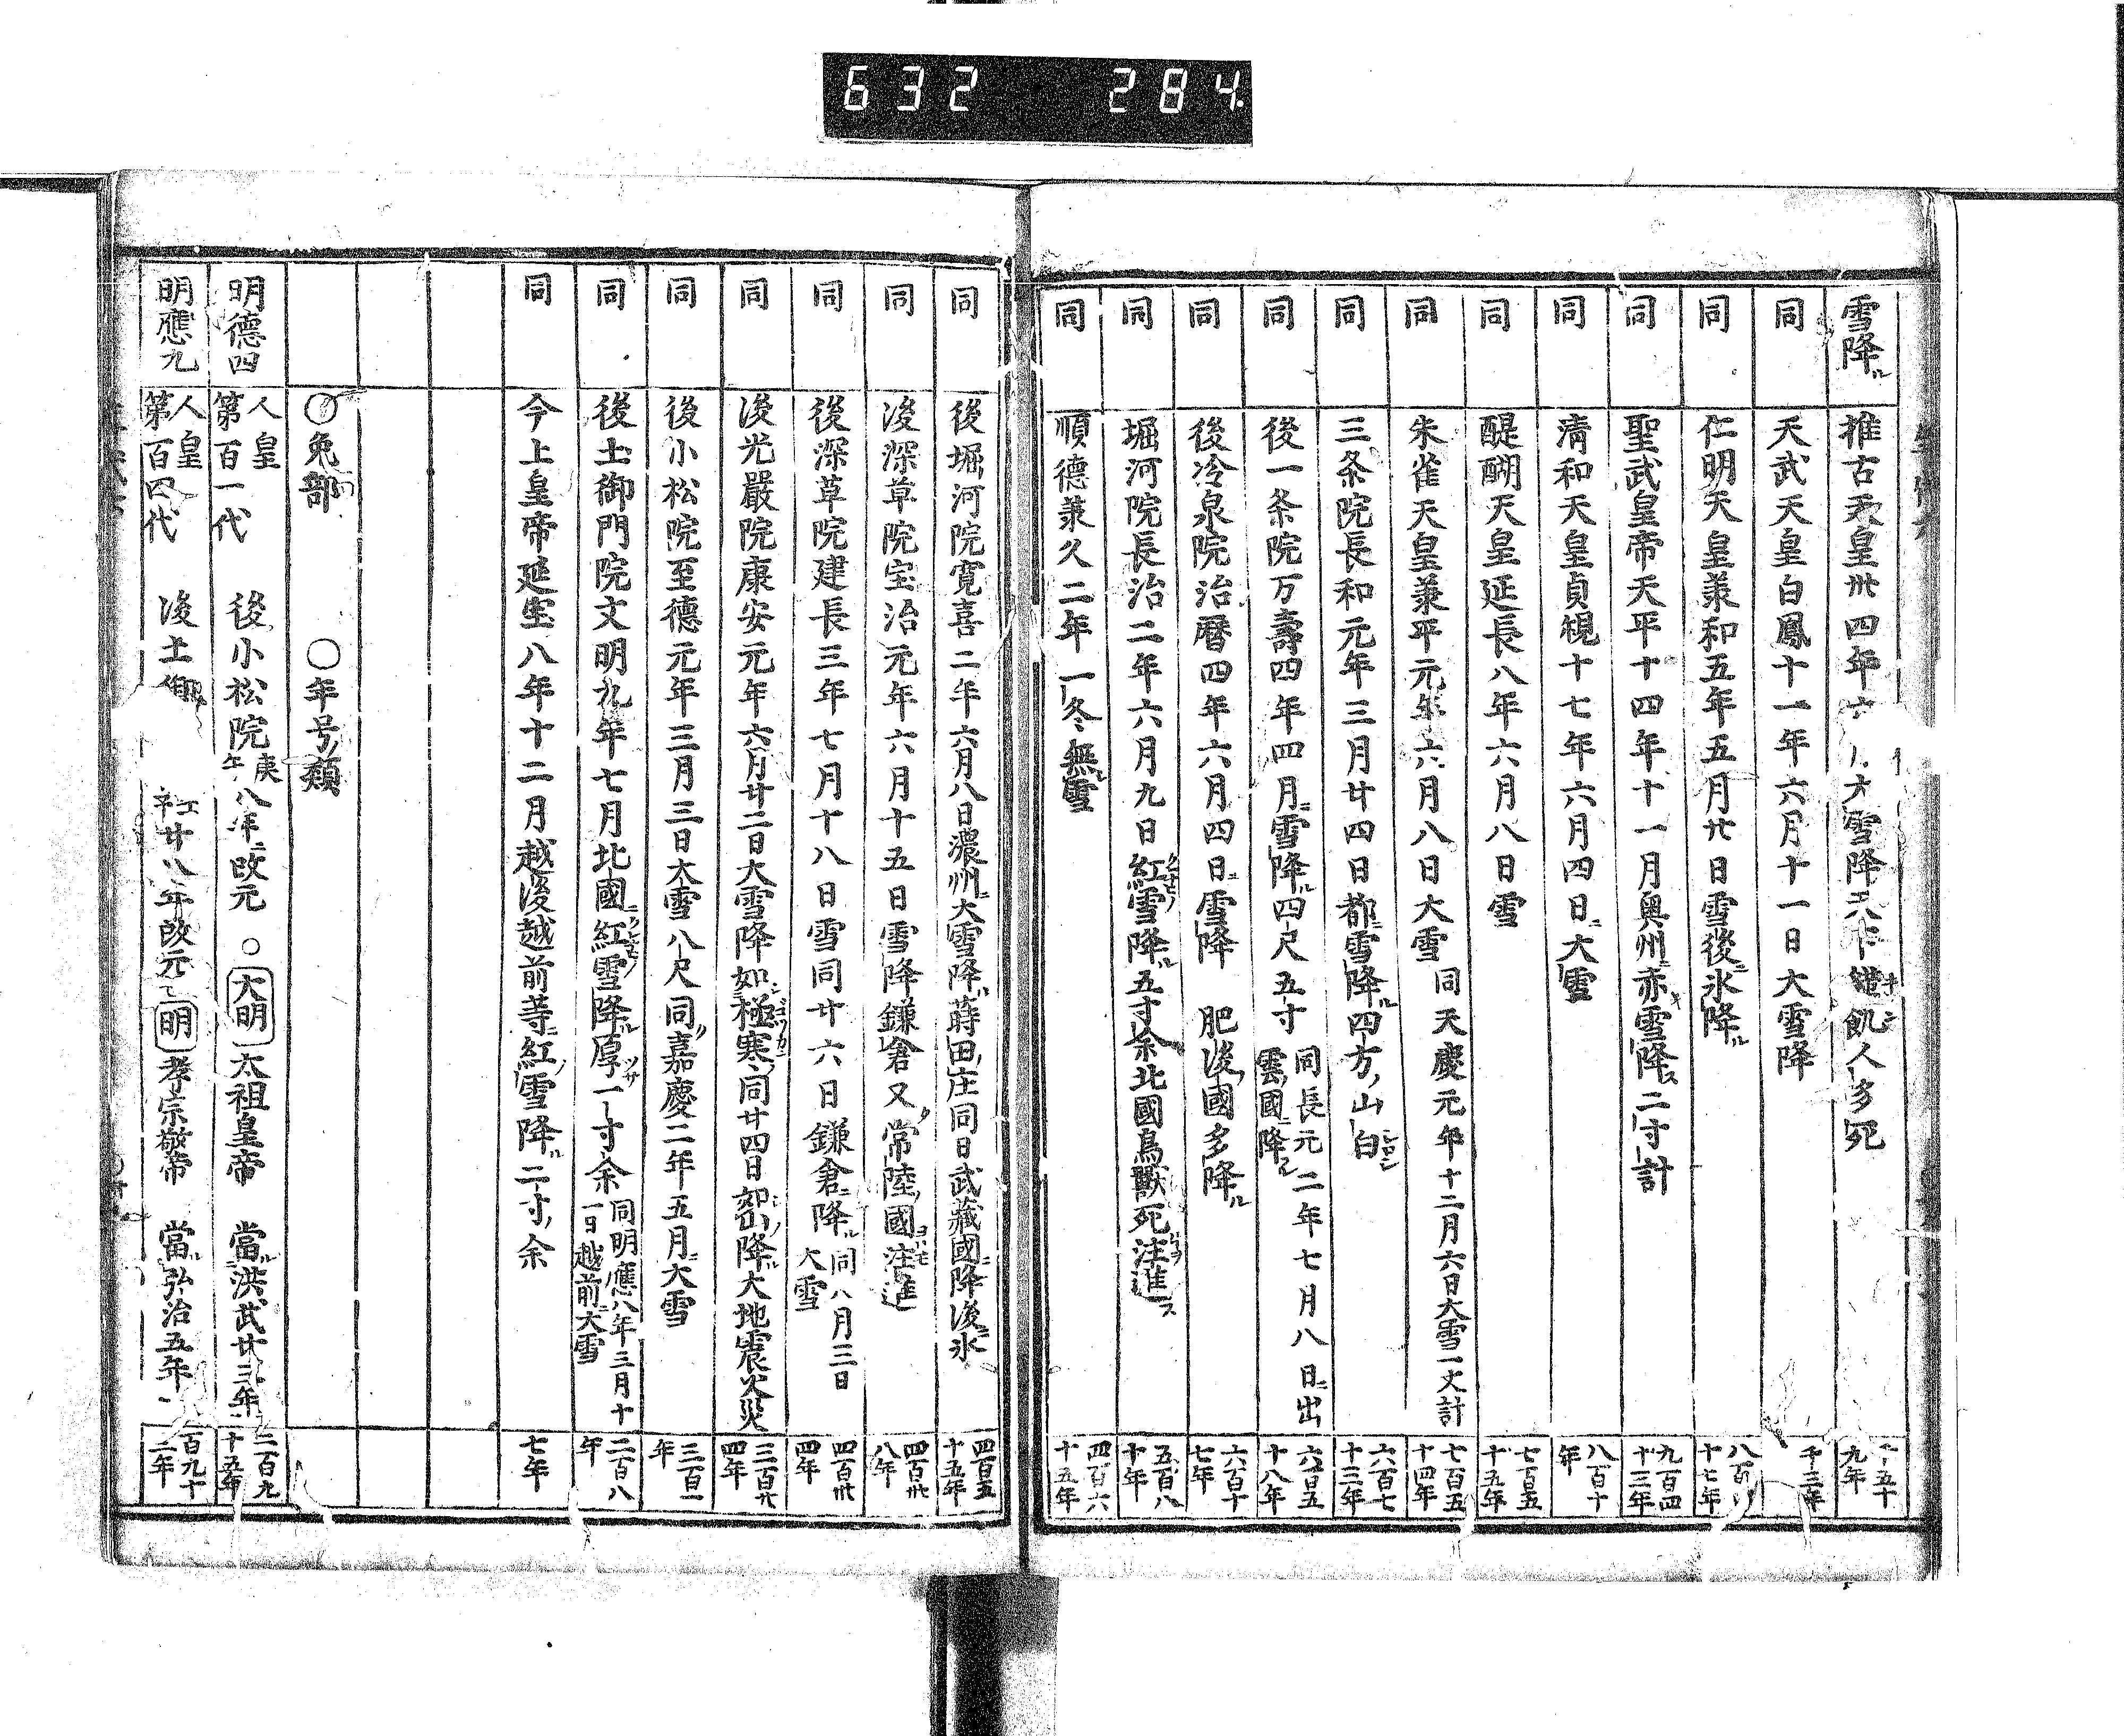 632 284
雪降ル 推古天皇卅四年六 大雪降 飢人多死 五十九年
同 天武天皇白鳳十一年六月十一日大雪降 千三年
同 仁明天皇兼和五年五月廿日雪後ニ氷降ル 八百 十七年
同 聖武皇帝天平十四年十一月奥州ニ赤キ雪降ス二寸計 九百四十三年
同 清和天皇貞観十七年六月四日ニ大雪 八百十年
同 醍醐天皇延長八年六月八日雪 七百五十五年
同 朱雀天皇兼平元年六月八日大雪 同天慶元年十二月六日大雪一丈計 七百五十四年
同 三条院長和元年三月廿四日都ニ雪降ル四方ノ山白シ 六百七十三年
同 後一条院万壽四年四月ニ雪降ル四尺五寸 同長元二年七月八日ニ出雲國ニ降ル 六百五十八年
同 後冷泉院治暦四年六月四日ニ雪降 肥後國多降ル 六百十七年
同 堀河院長治二年六月九日紅雪降ル五寸余北國鳥獸死注進ス 五百八十年
同 順德兼久二年一冬無雪 四百六十五年
同 後堀河院寛喜二年六月八日濃州ニ大雪降ル蒔田庄同日武藏國ニ降後ニ氷 四百五十五年
同 後深草院宝治元年六月十五日雪降鎌倉又常陸國注進 四百卅八年
同 後深草院建長三年七月十八日雪同廿六日鎌倉ニ降ル同八月三日大雪 四百卅四年
同 後光嚴院康安元年六月廿二日大雪降如極寒同廿四日如山降ル大地震火災 三百廿四年
同 後小松院至德元年三月三日大雪八尺同嘉慶二年五月ニ大雪 三百一年
同 後土御門院文明九年七月北國ニ紅雪降ル厚サ一寸余同明應八年三月十一日越前ニ大雪 二百八年
同 今上皇帝延宝八年十二月越後越前等ニ紅ノ雪降ル二寸余 七年
○兔部 ○年号ノ類
明德四 人皇第百一代 後小松院庚午八年ニ改元 ○大明太祖皇帝 當ル洪武廿三年 二百九十五年
明應九 人皇第百四代 後土御 廿八年改元 明孝宗敬帝 當ル弘治五年 百九十二年